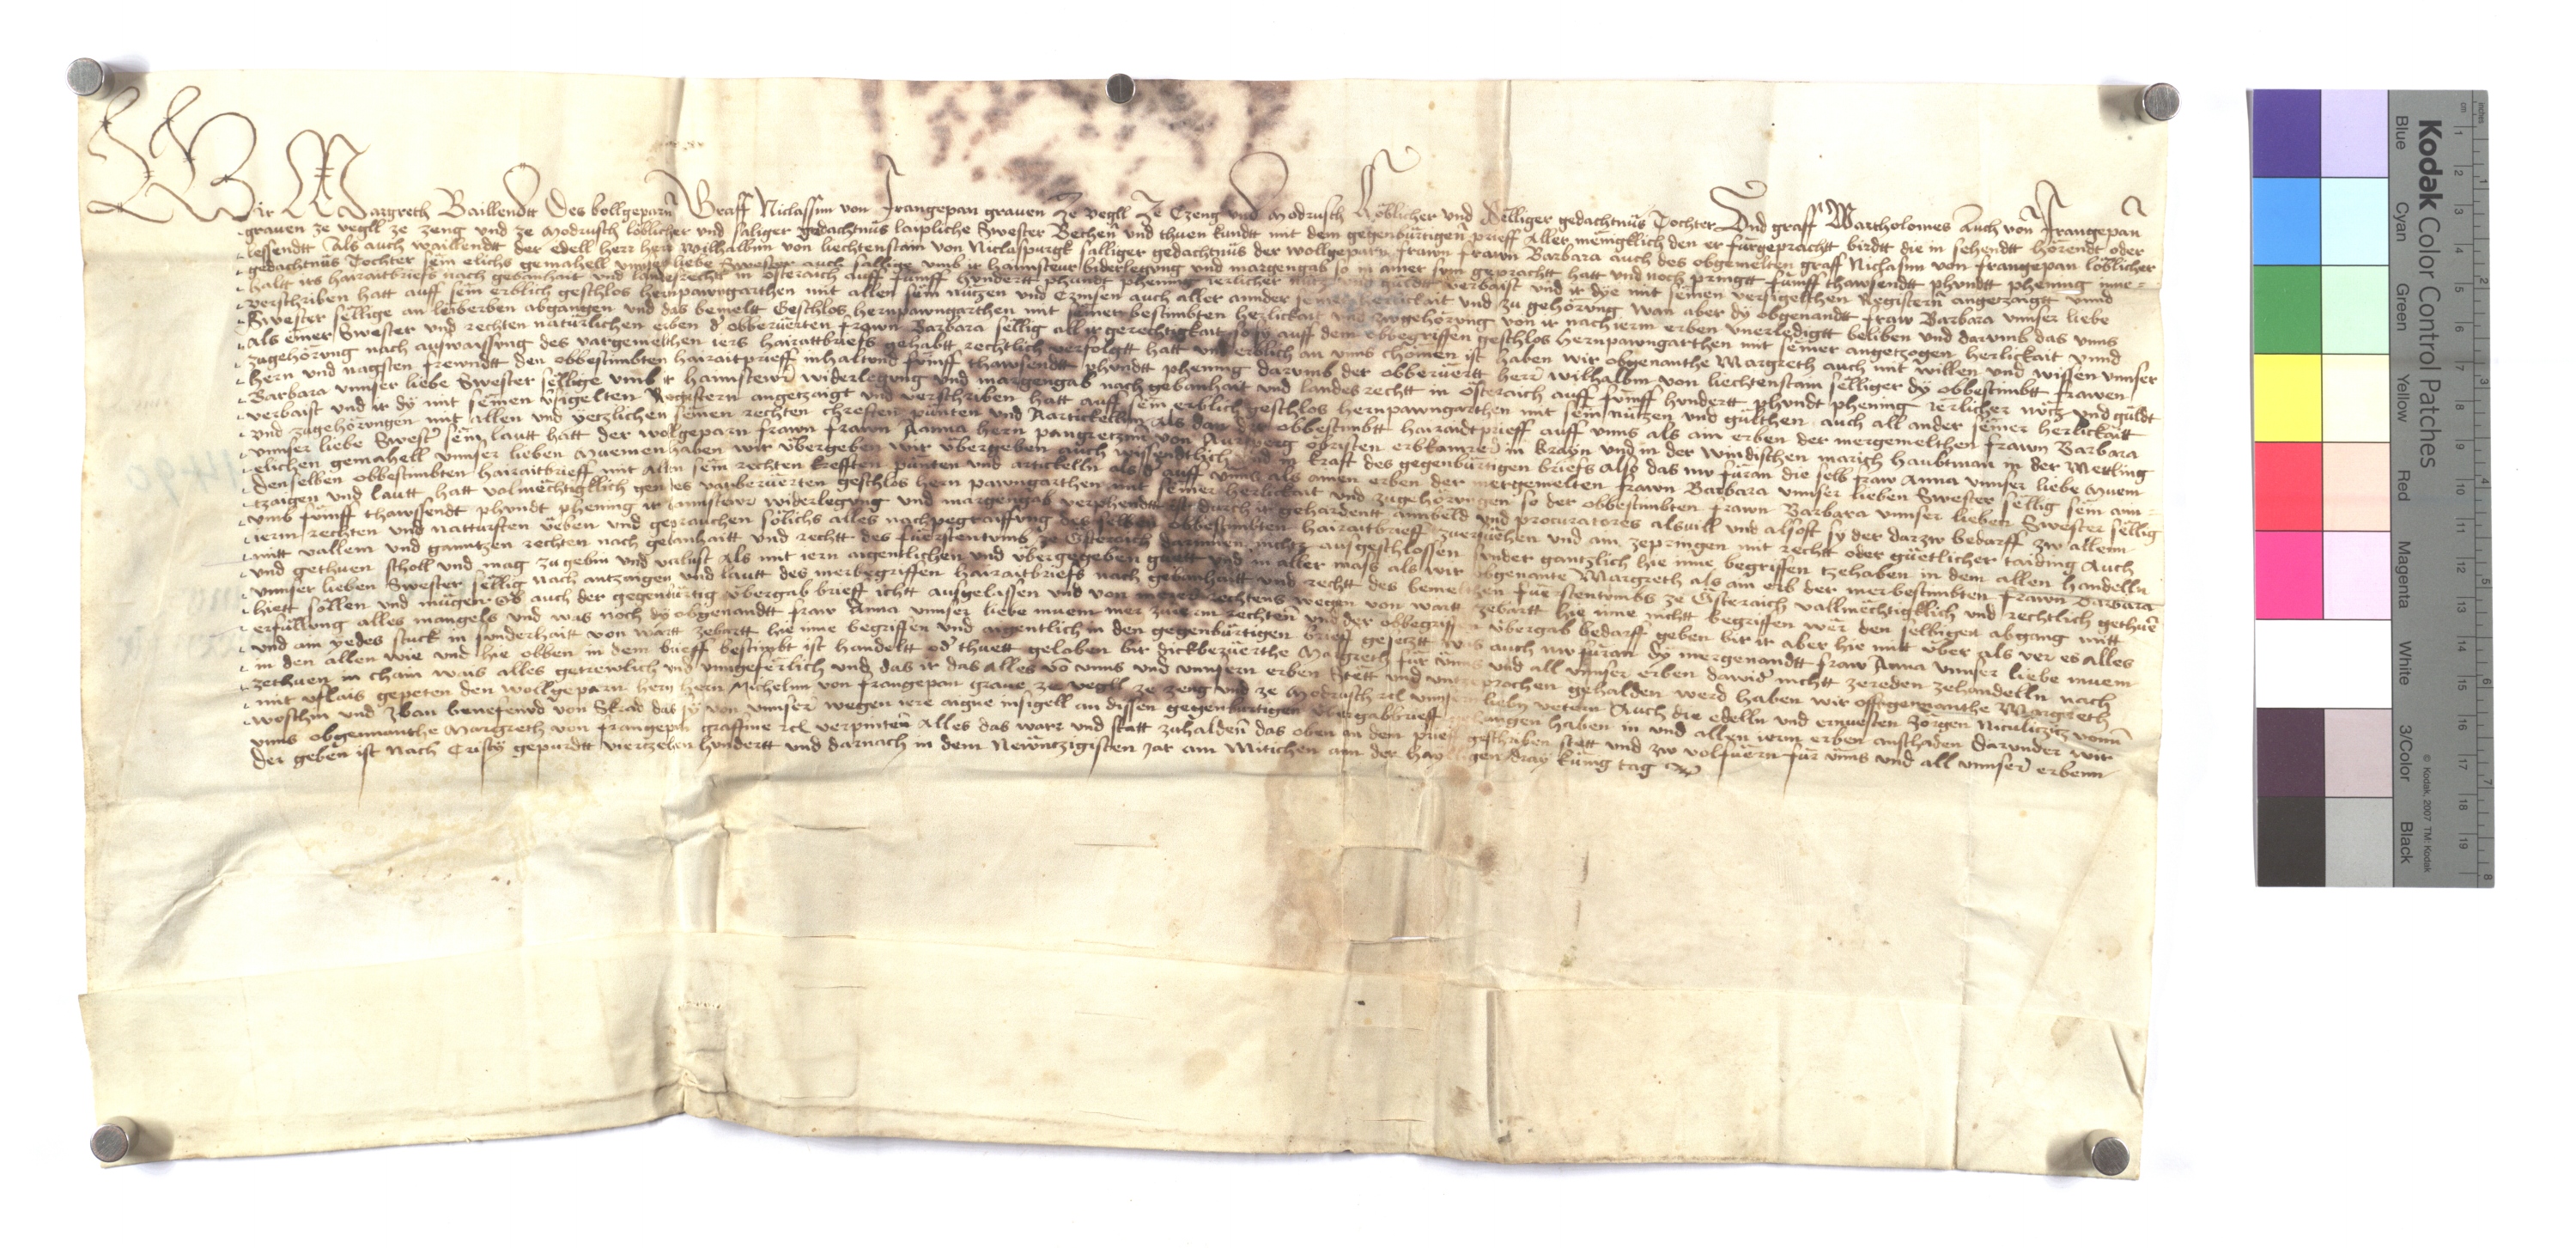 Wir Margreth Baillendtt des bollgeparñ Graff Niclassim von Frangepan graven Ze Vegll Ze Czeng und Modrusch Löblicher und Selliger gedachtnüs Tochter Und graff Bartholomes Auch von Frangepan
graven ze vegll ze zeng und ze Modrusch löblicher und saliger gedachtnüs laipliche Swester Bechen̄ und thuen kundtt mit dem gegenbürtigen̄ prieff Aller menigklich den er fürgeprachtt birdtt die in sehendtt hörendt oder
lessendtt Als auch waillendtt der edell herr herr wilhalbm von liechtenstain von Niclaspurgk salliger gedachtnüs der wollgeparn frawn frawn Barbara auch des obgemelten graff Niclasim von frangepan löblicher
gedachtnüs Tochter sein elichs gemahell unnser liebe Swester auch sallige umb ir haimsteur biderlegung und margengab so in ainer sum geprachtt hatt und noch pringtt fünff thawsendtt phundtt phening inne-
haltt irs hairattbriefs nach gebanhait und landesrechtt in Österaich auff fünff hundertt phundt phening ierlicher gültt verbaist und ir dye mit seinen versigelthen Registern̄ angetzaigtt unnd
verschriben hatt auff sein erblich geschlos hernpawngarthen mit allen sein nützen und Czinsen auch aller annder seiner herlickait und zu gehörung wan aber dy obgenandtt fraw Barbara unnser liebe
Swester sellige an leiberben abgangen und das bemeltt Geschlos hernpawngarthen mit seiner bestimbten herlickait und zwgehörung von ir nach ierm erben unerledigtt beliben und darumb das unns
als einer Swester und rechten natürlichen erben d' obberüerten frawn Barbara sellig all ir gerechtigkait so sy auff dem obbegriffen geschlos hernpawngarthen mit seiner angetzogen herlickait unnd
zugehörung nach auswaissung des vargemelthen iers hairattbriefs gehabtt rechtlich verfolgtt hatt und erblich an unns chömen ist haben wir obgenanthe Margreth auch mit willen und wissen unnser
hern und nagsten frewndtt den obbestimbten hairaitprieff inhaltund fünff thawsendtt phundtt phening darumb der obberüertt herr wilhalbm von liechtenstain selliger dy obbestimbtt frawen
Barbara unnser liebe Swester sellige umb ir haimstewr̄ widerlegung und margengab nach gebanhait und landes rechtt in österaich auff fünff hundertt phundt phening ierlicher nütz und güldt
verbaist und ir dy mit seinen vsigelten Registern angetzaigt und verschriben hatt auff sein erblich geschlos hernpawngarthen mit sein nützen und gülthen auch all ander seiner herlickaitt
und zugehörungen mit allen und yetzlichen seinen rechten chrefften pünten und Kartickelln als dan der obbestimbtt hairaidtprieff auff unns als ain erben der mergemelthen frawn Barbara
unnser liebe Swest' sein lautt hatt der wollgeparn frawn frawn Aanna hern pangretzen von Aursperg obristen erbkamrer̄ in krayn und in der windischen marich haubtman in der Mettling
elichen gemahell unnser lieben Muemen haben wir übergeben wir übergeben auch wissendtlich und in krafft des gegenbürtigen briefs also das nw füran die selb fraw Anna unnser liebe Muem
denselben obbestimbten hairaitbrieff mit allen sein rechten krefften pünten und artickelln als er auff unns als ainen erben der mergemelten frawn Barbara unnser lieben Swester sellig sein ann-
tzaigen und lautt hatt volmechtigklich gen des varberüerten geschlos hern pawngarthen mit seiner herlickait und zugehörungen so der obbestimbten frawn Barbara unnser lieben Swester sellig
umb fünff thawssendt phundt phening ir haimstewr widerlegung und margengab verphendtt ist durch ir gehardentt anmbeld und procuratores alswill und alsofft sy der darzw bedarff zw allem
ierm rechten und natturfften üeben und geprauchen sölichs alles nachpegraiffung des selben obbestimbten hairaitbrieff zuersüehen und ain zepringen mit rechtt oder güetlicher taiding Auch
mitt vallem und ganntzen rechten nach gebanhaitt und rechtt des fürstentumbs ze Österaich darinnen nichts ausgeschlossen sunder gantzlich hie inne begriffen tzehaben in dem allen handelln
und gethuen scholl und mag zu gebin und valust als mit iern aigentlichen und übergegeben güett und in aller mass als wir obgenante Margreth als ain erb der merbestimbten frawn Barbara
unnser lieben Swester sellig nach antzaigen und lautt des merbegriffen hairaitbriefs nach gebanhaitt und rechtt des bemelthen fürstentumbs ze Österaich vallmechtigklich und rechtlich gethuen̄
hiett söllen und mügen Ob auch der gegenbürtig übergab brieff ichtt ausgelassen und von rechtens wegen von wartt zebartt hie inne nichtt begriffen wer den selbigen abgang mitt
erfüllung alles mangels und was noch dy obgenandtt fraw Anna unnser liebe muem mer zu ierm rechten̄ und der obbegriffen übergab bedarff geben bir ir aber hie mitt über als ver es alles
und ain yedes stuck in sunderhaitt von wartt zebartt hie inne begriffen und aigentlich in den gegenbürtigen brieff gesetztt was auch nw füran dy mergenandtt fraw Anna unnser liebe muem
in den allen wie und hie obben in dem brieff bestimbt ist handeltt od' thuett geloben bir dickberüerthe Margreth für unns und all unnser erben dawid' nichtt zereden zehandelln nach
zethuen in chain wais alles getrewlich und unngeferlich und das ir das alles vō unns und unnsern erben stett und untzeprochen gehalden werd haben wir offtgenanthe Margreth
mit vleis gepeten den wollgeparn hern hern Michelm von frangepan grave ze vegll ze zeng und ze Modrusch unnsern liebn vetern Auch die edelln und ernvesten Jörgen Niculiczitz vonn̄
woschin und Iban benefewd von Skrad das sy von unnser wegen iere aigne insigell an dissen gegenbürtigen übergabbrieff gehangen haben in und allen ierm erben anschaden darunder wir
unns obgenanthe Margreth von frangepan graffine verpinten̄ Alles das war und statt zuhalden̄ das oben an dem prieff geschriben stett und zw volfüern für unns und all unnser erbenn
der geben̄ ist Nach Cristy gepurdtt viertzehen hundertt und darnach in dem Newntzigisten Jar am Mitichen ann der haylligen dray künig tag
Kodak Color Control Patches
Blue Cyan Green Yellow Red Magenta White 3/Color Black
© Kodak, 2007 TM: Kodak
cm 1 2 3 4 5 6 7 8 9 10 11 12 13 14 15 16 17 18 19
inches 1 2 3 4 5 6 7 8